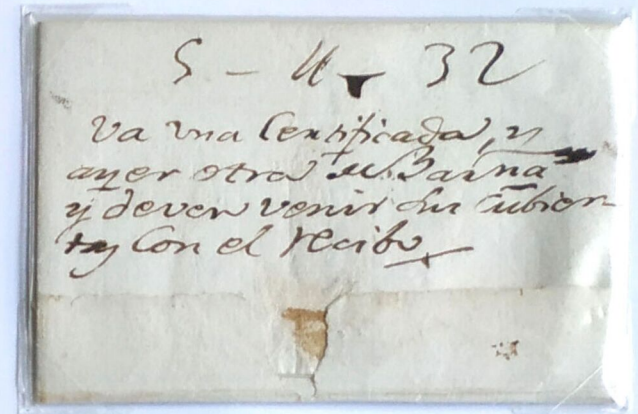 5 - 4 - 32
Va una Certificada, y
ayer otra de Barna
y deven venir sus Cubier-
tas Con el recibo